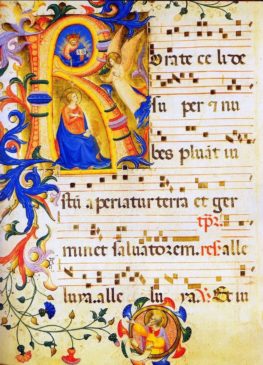 Rorate ce li de
su per & nu
bes pluāt iu
stū aperiatur terra et ger
minet saluatorem. res. alle
luya. alle lu ya. V. Et iu